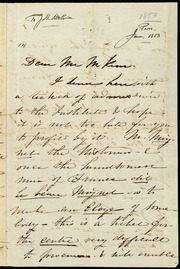 To J. M. McKim
1853
Paris
Jan. 1853
Dear Mr McKim
I leave here with
a ticket of admission
to the Institute & hope
it is not too late for you
to profit by it. Mr Mig-
net the Historian &
once the handsomest
man of France
Mignet is to
make an Eloge of some
body – this is a ticket for
the centre very difficult
to procure & will enable